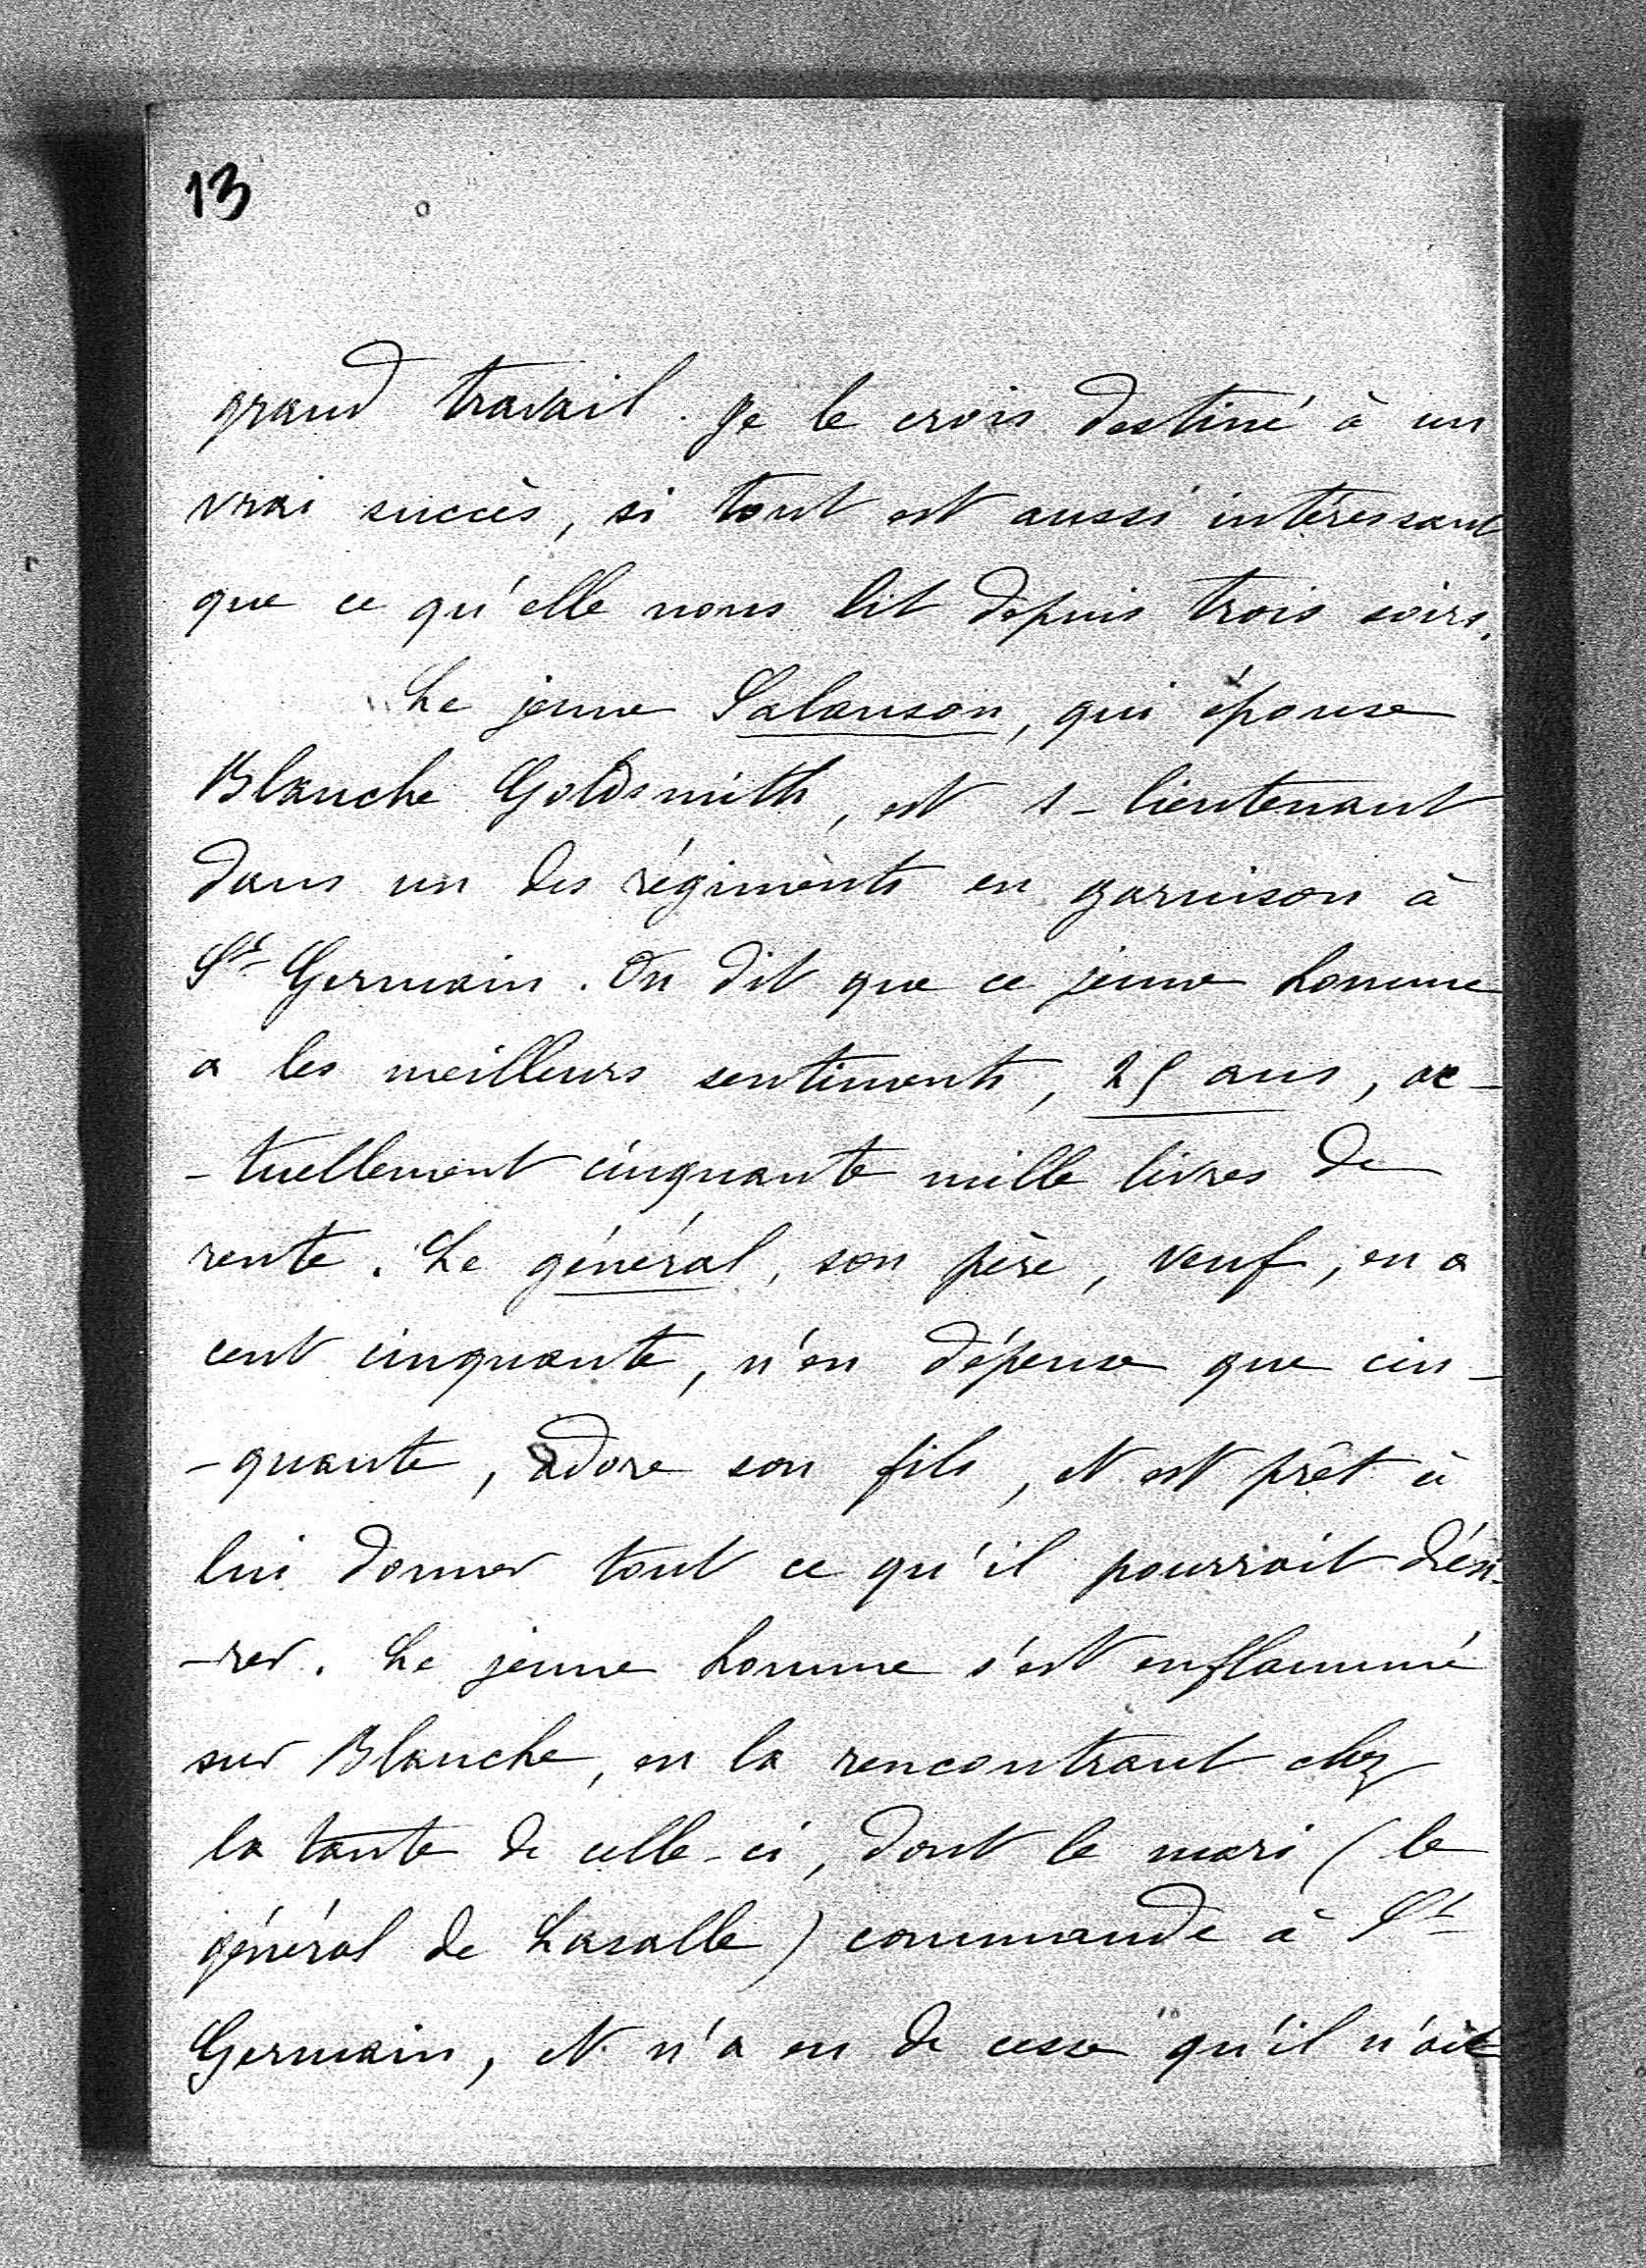 13
grand travail. Je le crois destiné à un
vrai succès, si tout est aussi intéressant
que ce qu'elle nous lit depuis trois soirs.
Le jeune Salanson, qui épouse
Blanche Goldsmith, est s-lieutenant
dans un des régiments en garnison à
St Germain. On dit que ce jeune homme
a les meilleurs sentiments, 25 ans, ac-
-tuellement cinquante mille livres de
rente. Le général, son père, veuf, en a
cent cinquante, n'en dépense que cin-
-quante, adore son fils, et est prêt à
lui donner tout ce qu'il pourrait dési-
-rer. Le jeune homme s'est enflammé
sur Blanche, en la rencontrant chez
la tante de celle-ci, dont le mari (le
général de Lasalle) commande à St
Germain, et n'a eu de cesse qu'il n'ait